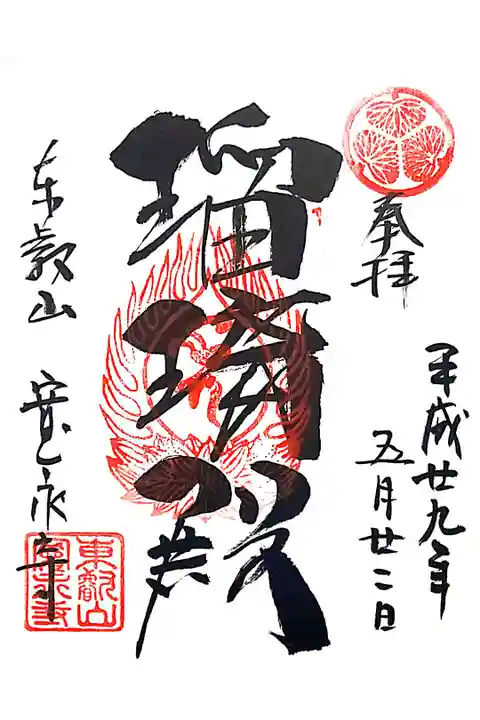 奉拝
平成廿九年
五月廿二日
瑠璃殿
東叡山 寛永寺
東叡山
寛永寺